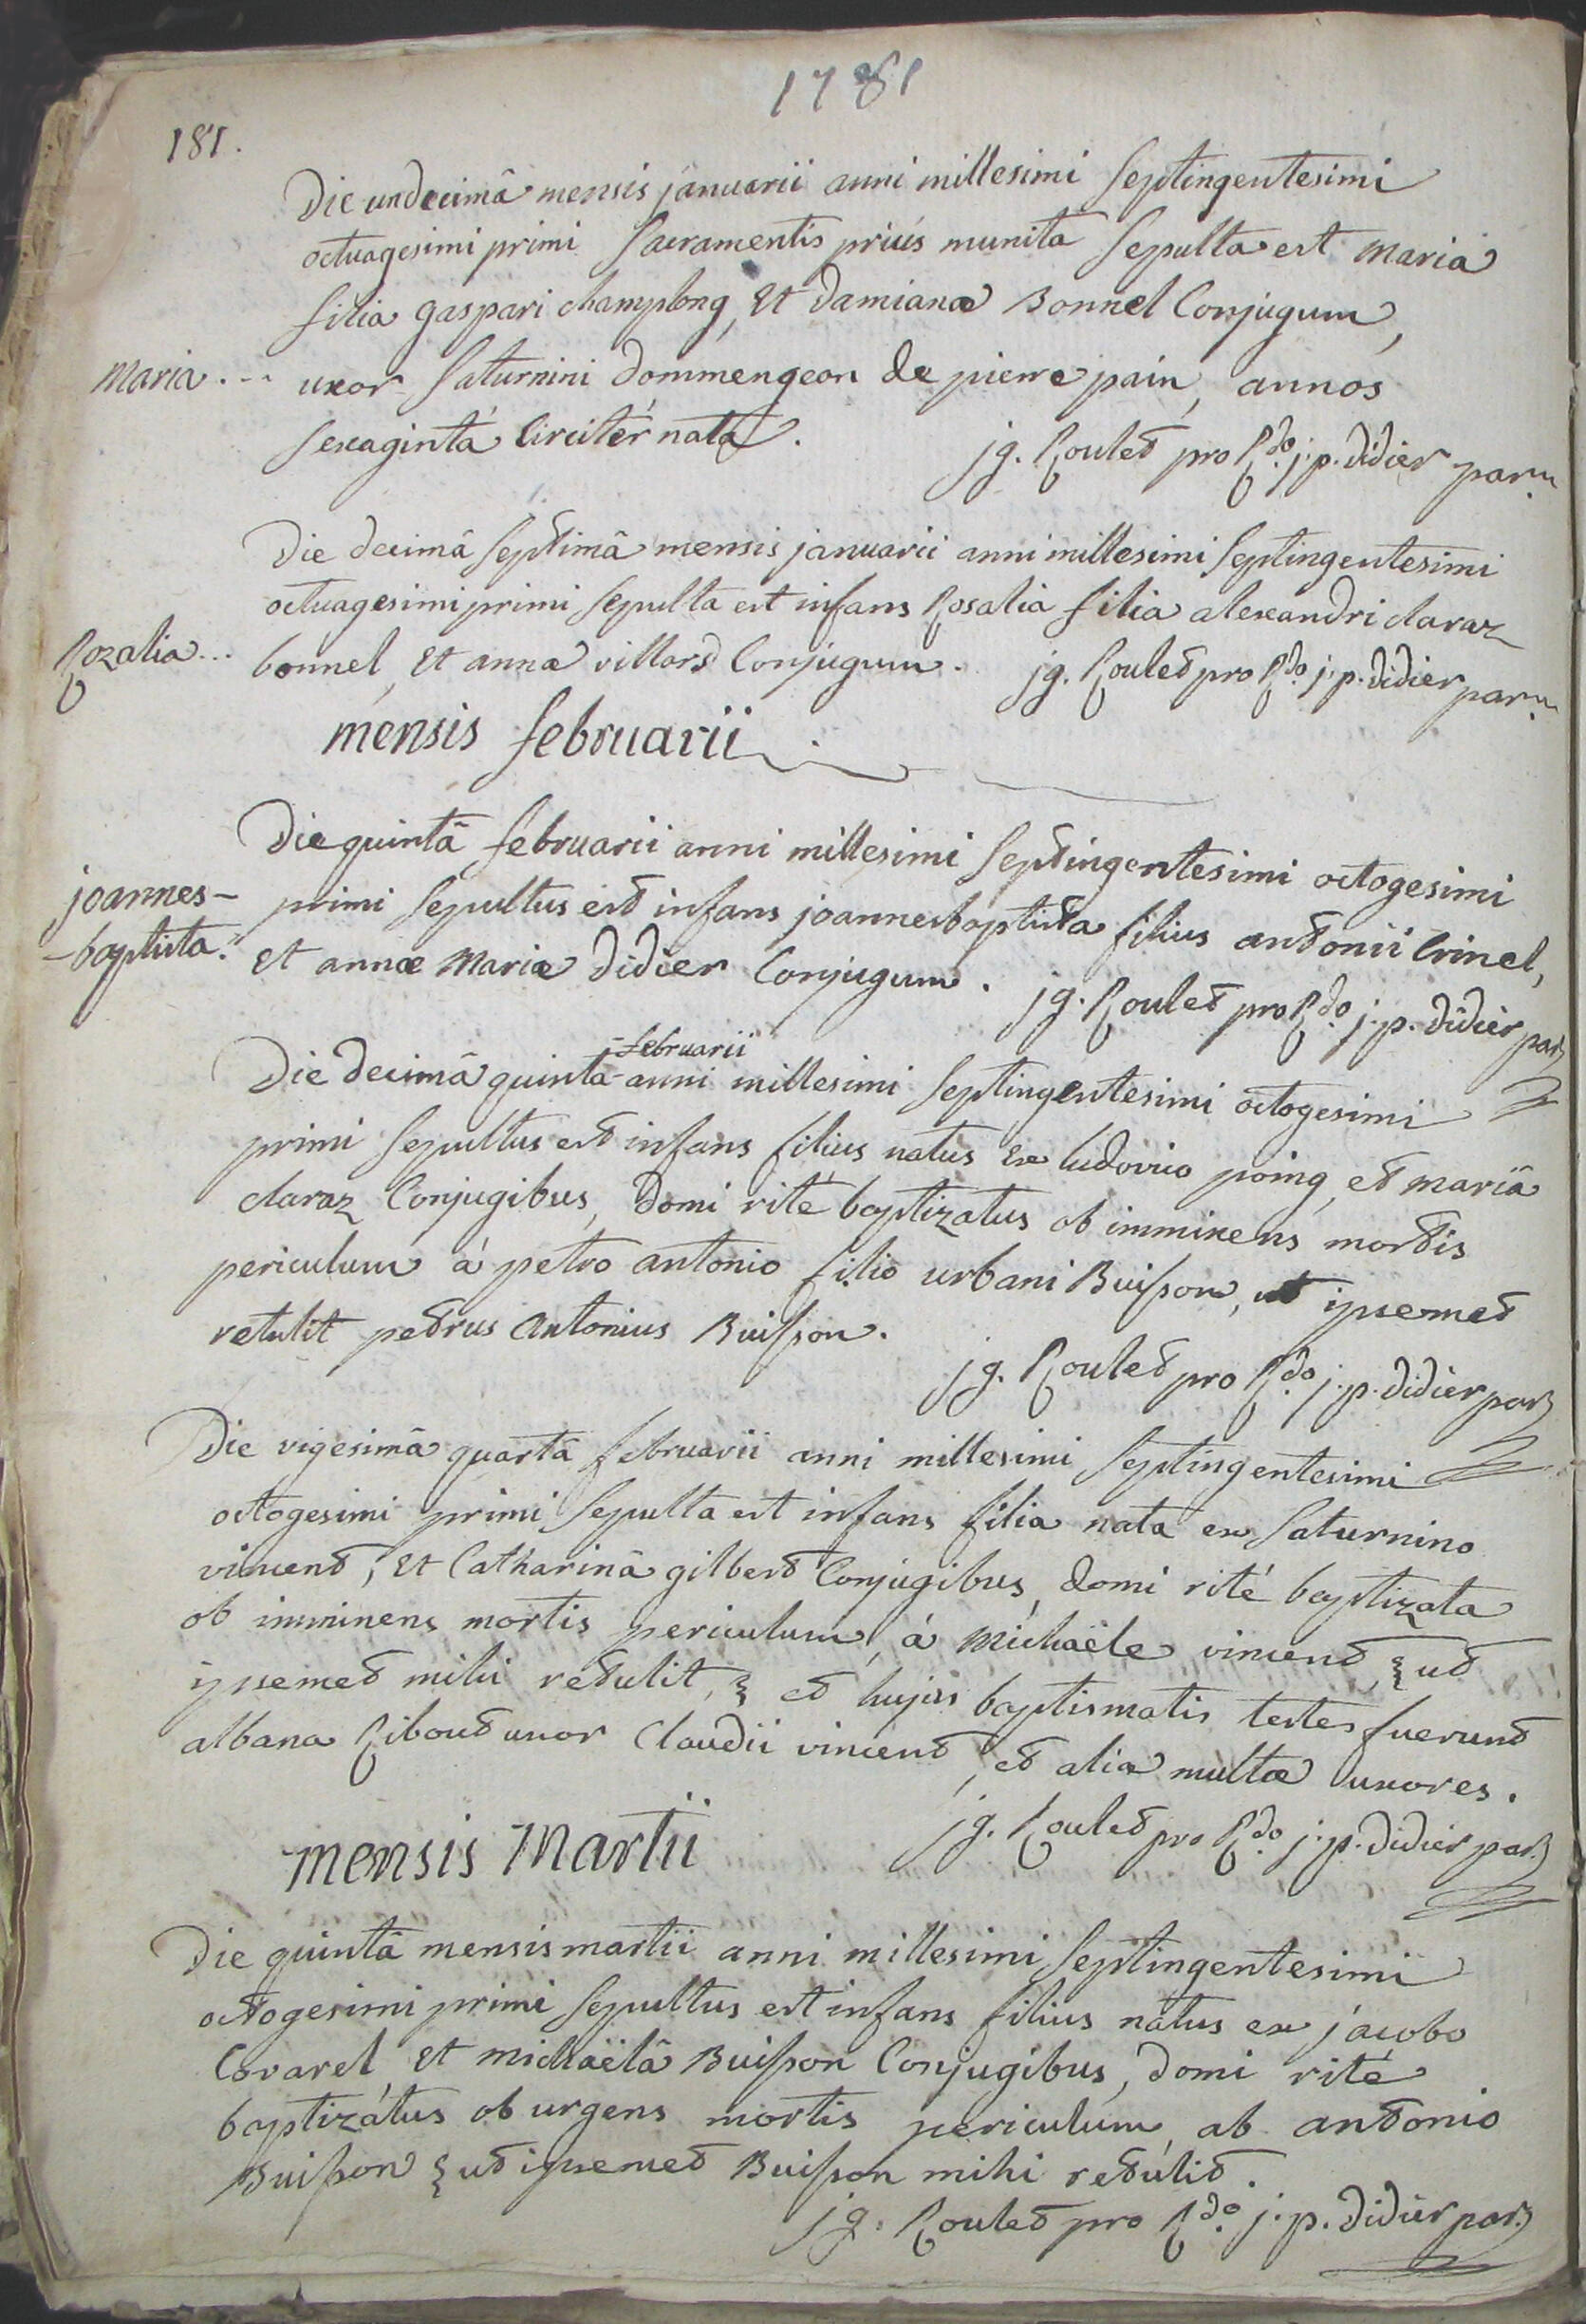 1781
181.
Die undecimâ mensis januarii anni millesimi septingentesimi
octuagesimi primi sacramentis priús munita sepulta est maria
filia gaspari champlong, et damianæ Bonnel conjugum,
maria... uxor saturnini dommengeon de pierre pain, annos
sexagintá circitér nata.
jg. Rouled pro Rdo. j. p. didier par.
Die decimâ septimâ mensis januarii anni millesimi septingentesimi
octuagesimi primi sepulta est infans Rosalia filia alexandri claraz
Rozalia... bonnel, et anna villard conjugum. jg. Rouled pro Rdo. j. p. didier par.
mensis februarii
Die quintâ februarii anni millesimi septingentesimi octogesimi
joannes- primi sepultus est infans joannesbaptista filius antonii Crinel,
-baptista. et annæ mariæ didier conjugum. jg. Rouled pro Rdo. j. p. didier par.
februarii
Die decimâ quintâ anni millesimi septingentesimi octogesimi
primi sepultus est infans filius natus ex ludovico poing, et mariâ
claraz conjugibus, domi rité baptizatus ob imminens mortis
periculum á petro antonio filio urbani Buisson, ut ipsemet
retulit petrus antonius Buisson.
jg. Rouled pro Rdo. j. p. didier par.
Die vigesimâ quartâ februarii anni millesimi septingentesimi
octogesimi primi sepulta est infans filia nata ex saturnino
vincent, et Catharinâ gilbert conjugibus, domi rité baptizata
ob imminens mortis periculum, á michaële vincent, ut
ipsemet mihi retulit, et hujus baptismatis testes fuerunt
albana Riboud uxor Claudii vincent, et aliæ multæ uxores.
jg. Rouled pro Rdo. j. p. didier par.
mensis Martii
Die quintâ mensis martii anni millesimi septingentesimi
octogesimi primi sepultus est infans filius natus ex jacobo
Covarel, et michaëlâ Buisson conjugibus, domi rité
baptizátus ob urgens mortis periculum ab antonio
Buisson ut ipsemet Buisson mihi retúlit.
jg. Rouled pro Rdo. j. p. didier par.